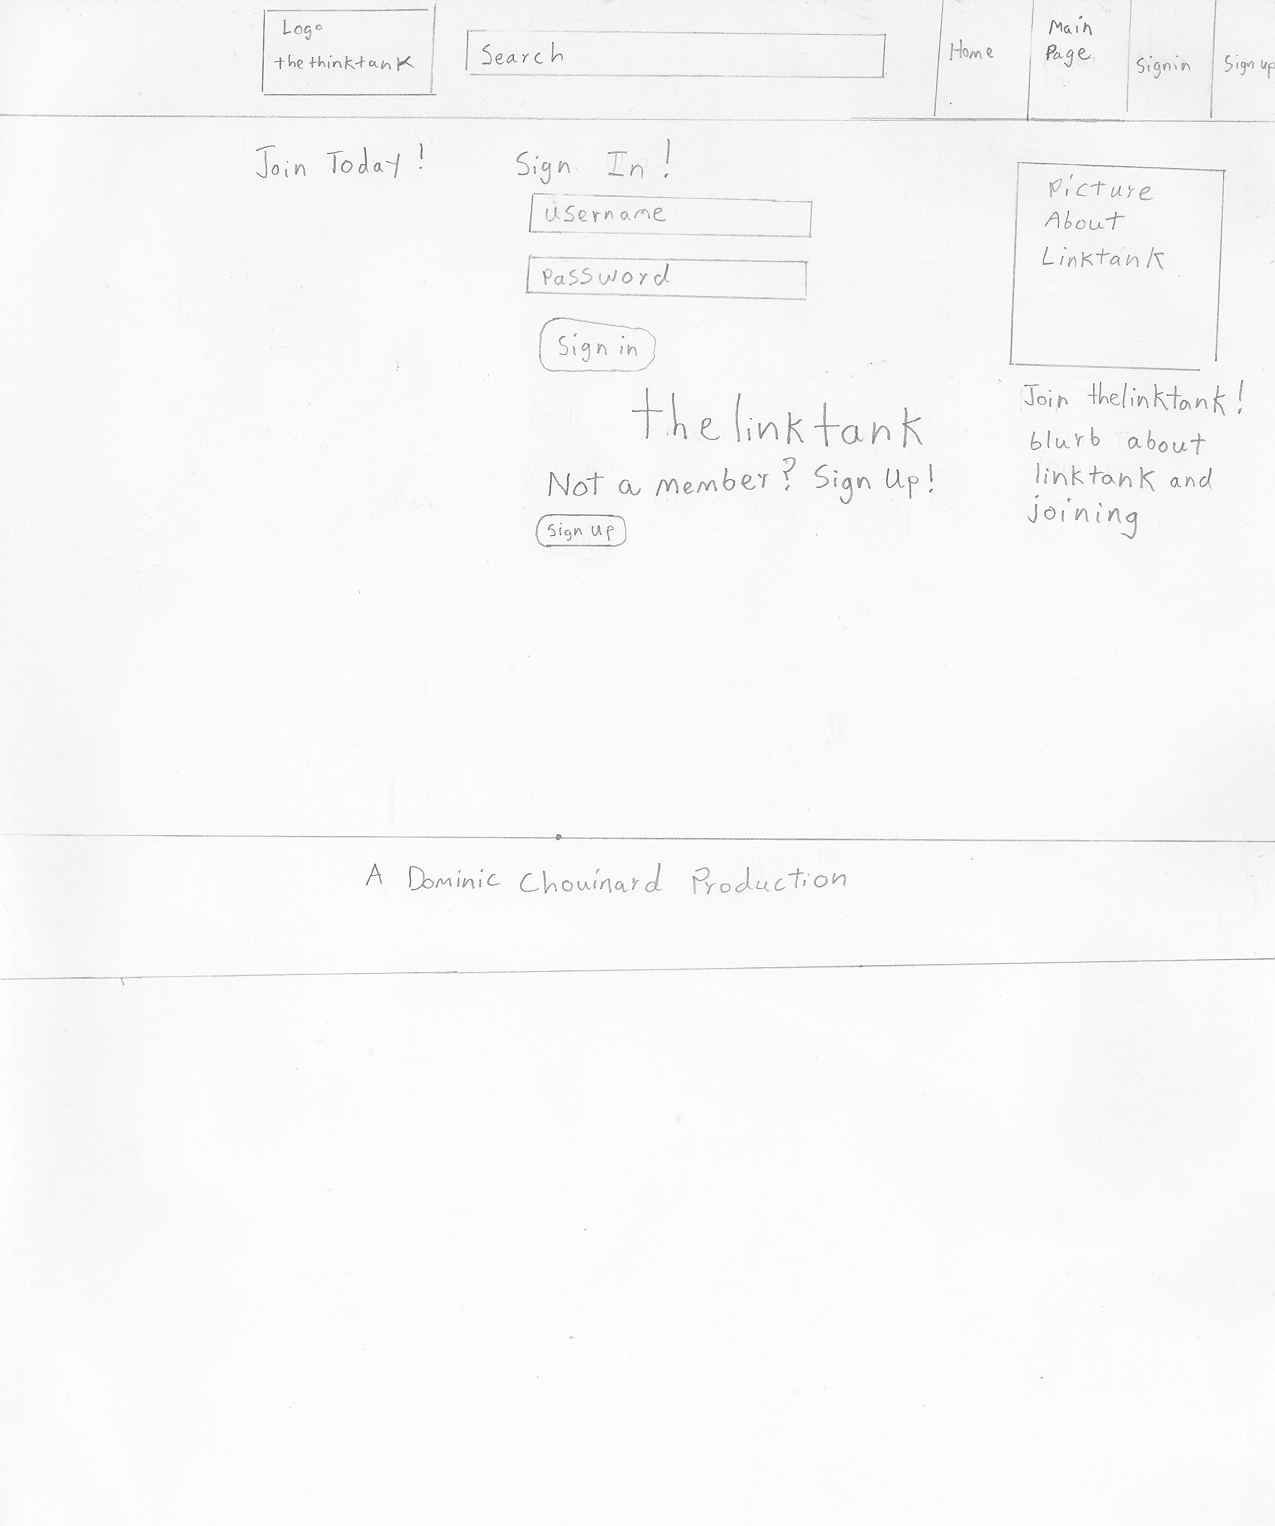 Logo
thethinktank
Search
Home
Main
Page
Signin
Sign up
Join Today!
Sign In!
username
password
Sign in
thelinktank
Not a member? Sign Up!
Sign up
Picture
About
Linktank
Join thelinktank!
blurb about
linktank and
joining
A Dominic Chouinard Production